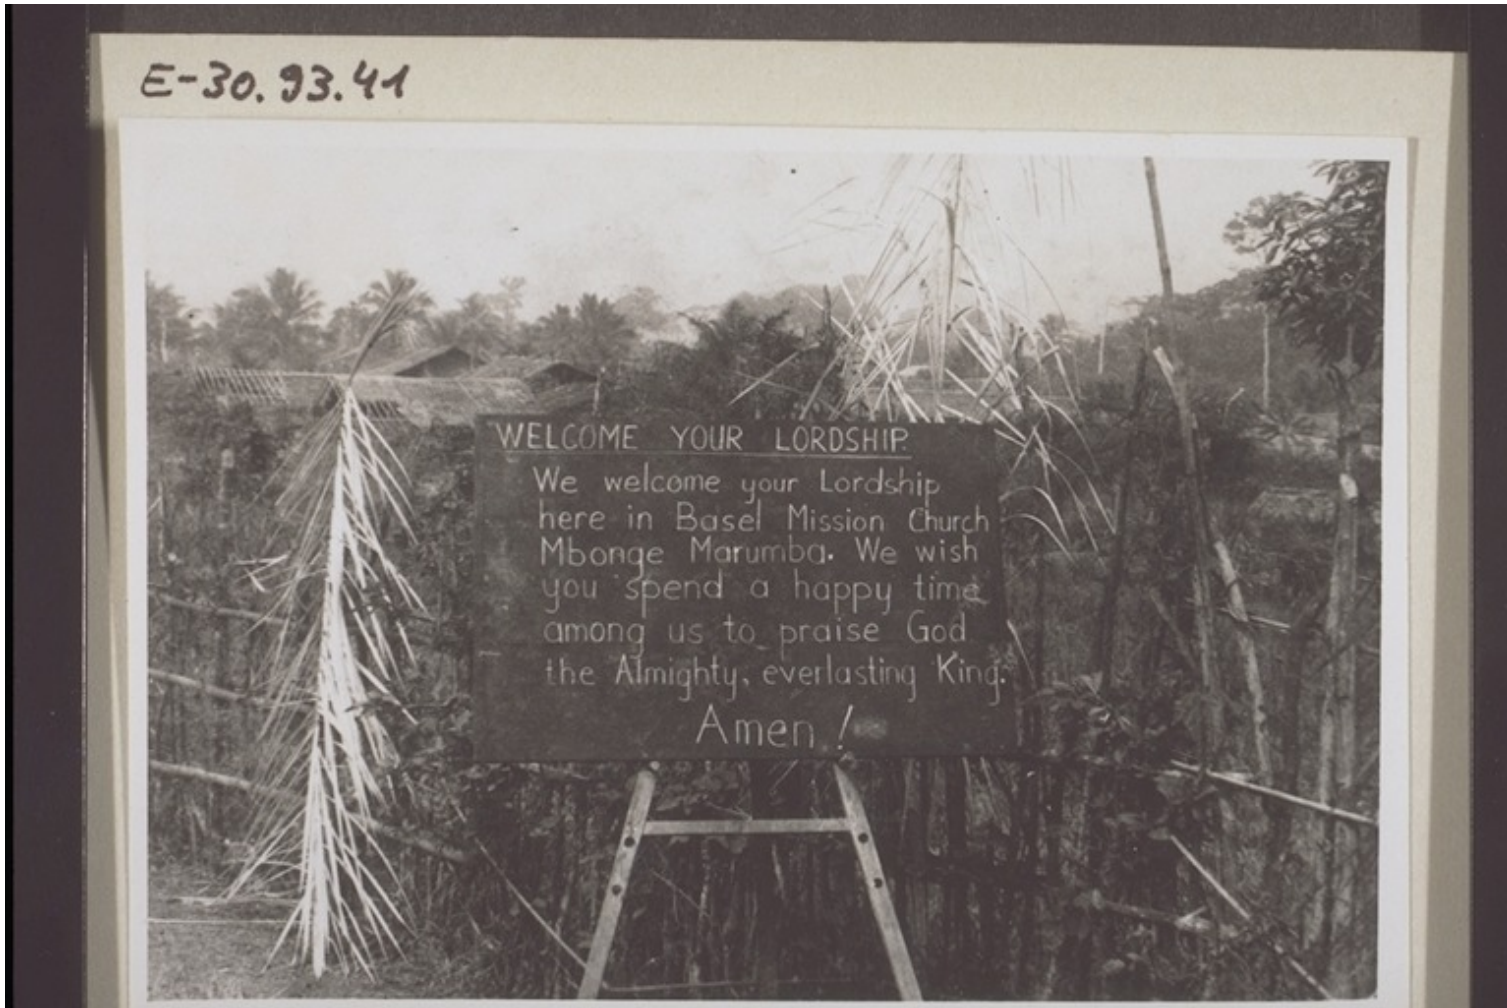 E-30.93.41
WELCOME YOUR LORDSHIP.
We welcome your Lordship
here in Basel Mission Church
Mbonge Marumba. We wish
you spend a happy time
among us to praise God
the Almighty, everlasting King.
Amen!